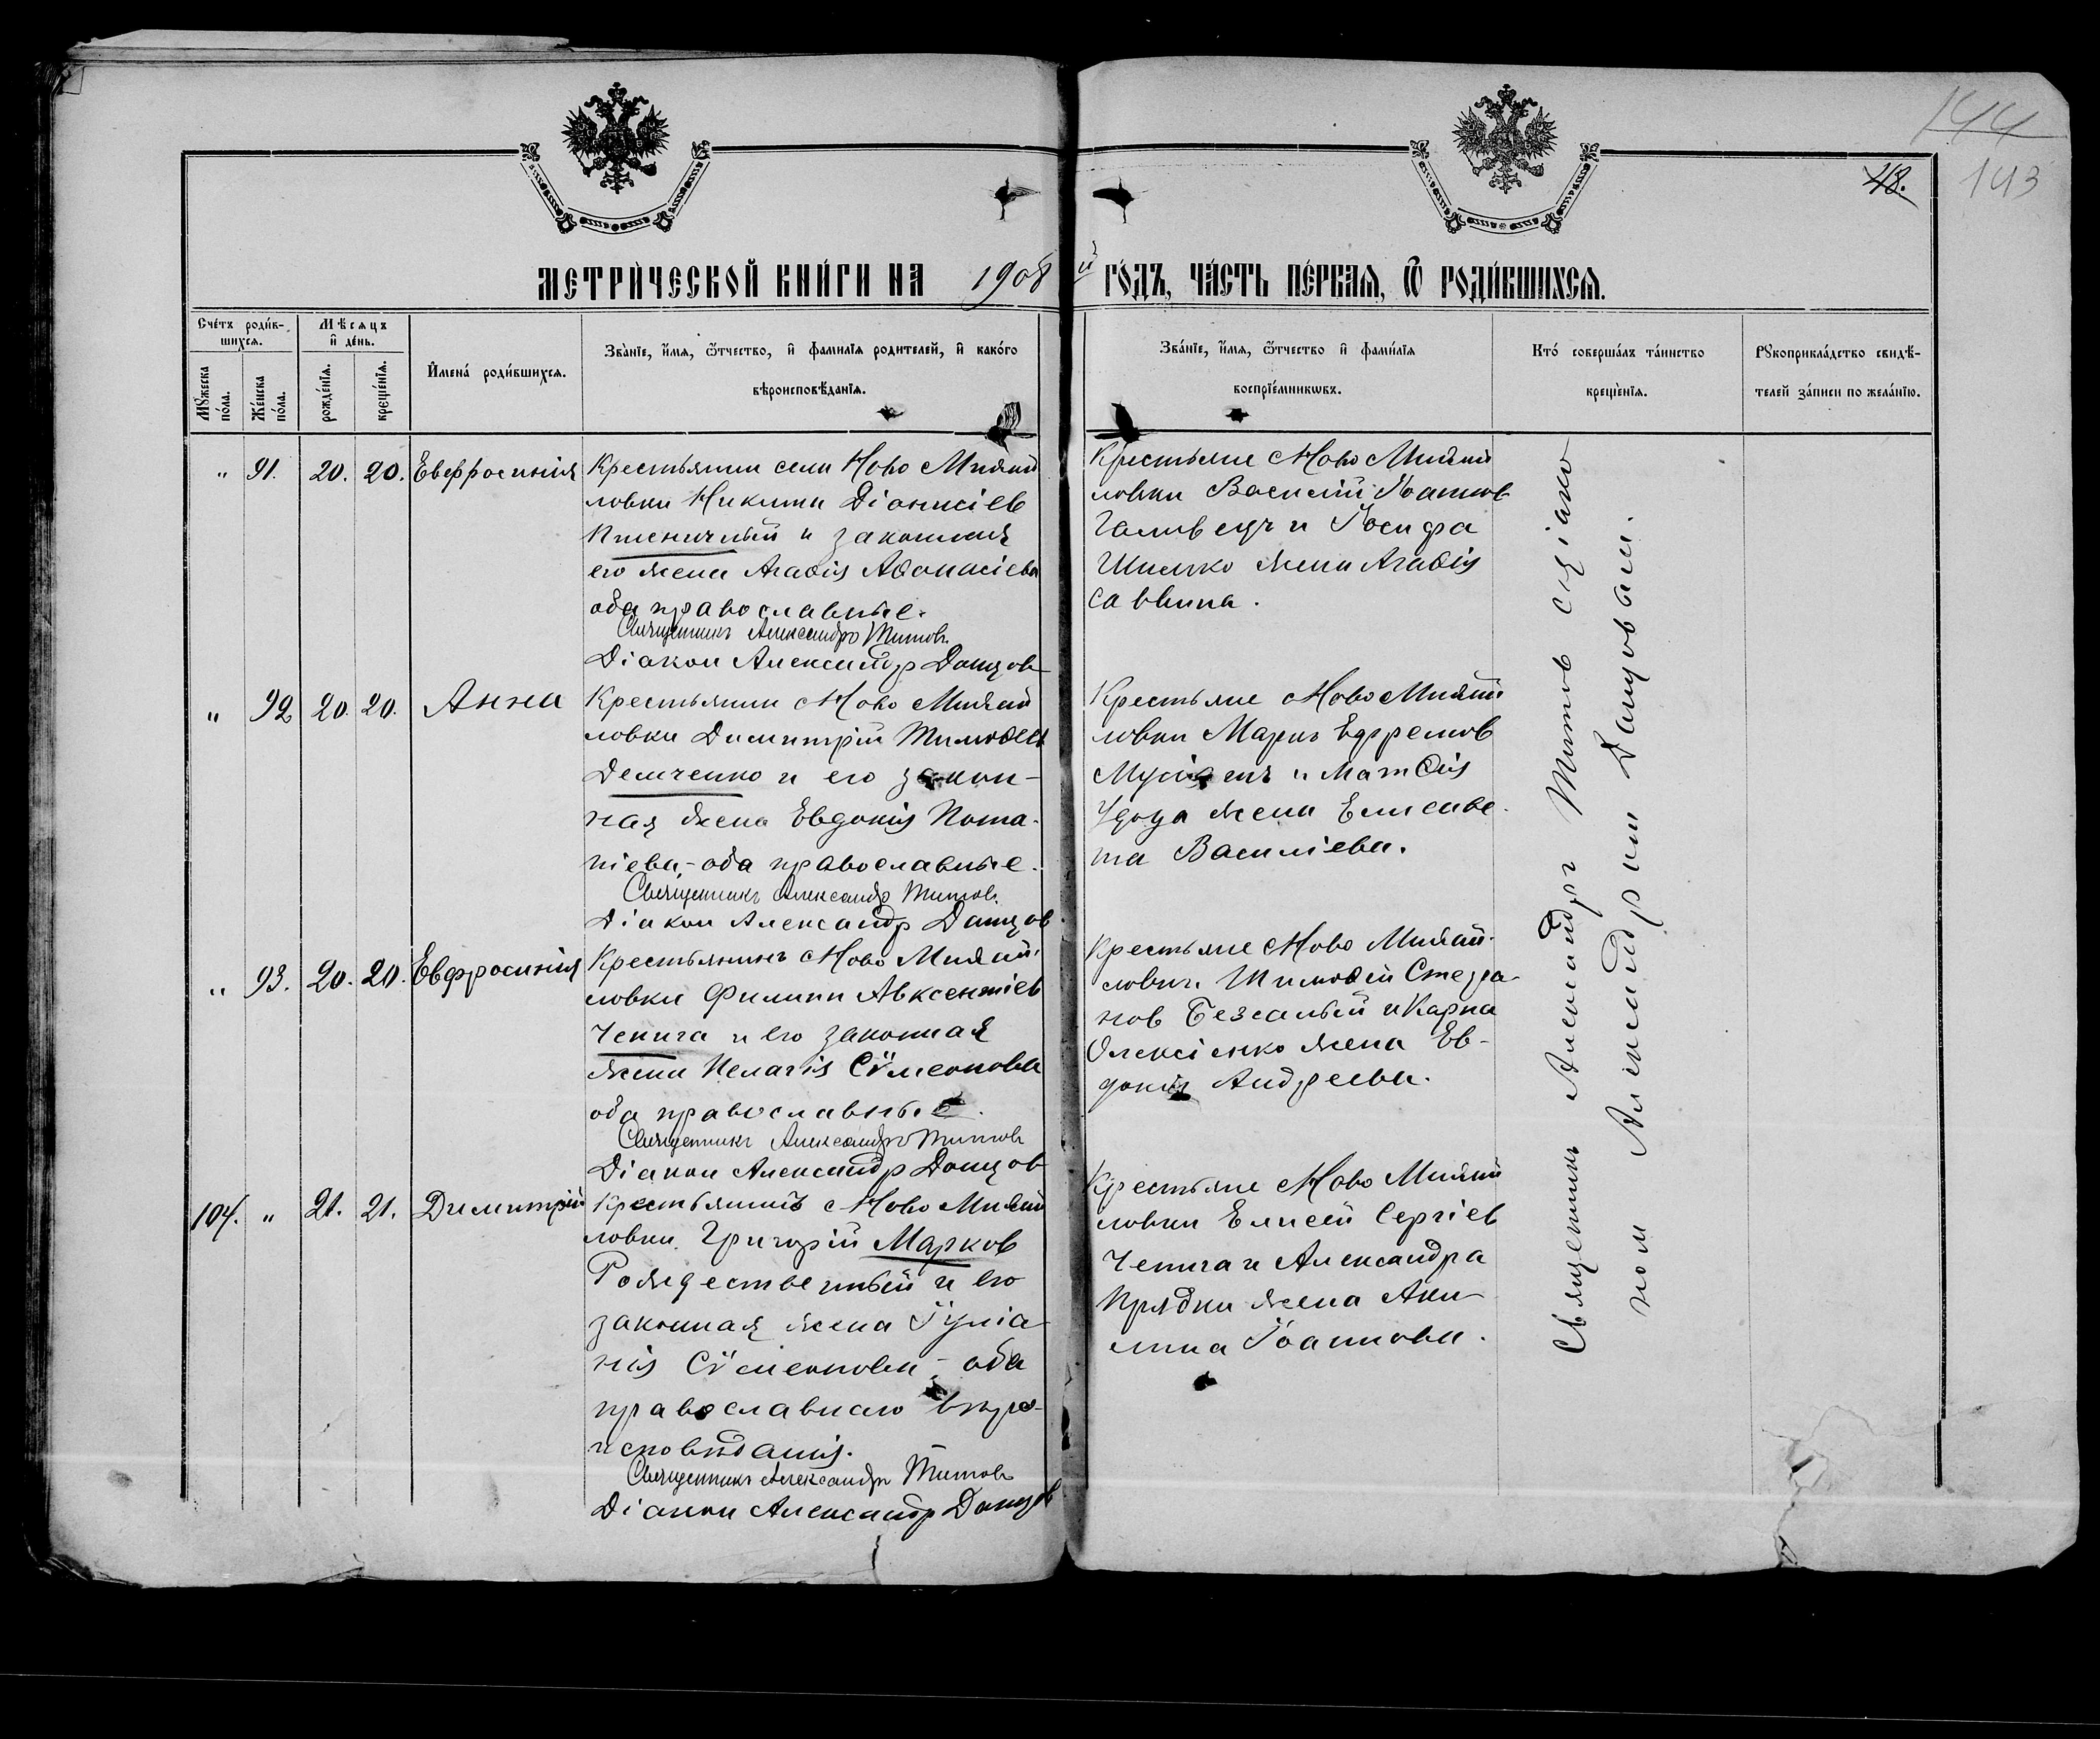 144
143
48.
МЕТРИ́ЧЕСКОЙ КНИ́ГИ НА 1908 й ГО́ДЪ, ЧА́СТЬ ПЕ́РВАЯ, Ѽ РОДИ́ВШИХСЯ.
Сче́тъ роди́в-
шихся.
Му́жеска
по́ла.
Же́нска
по́ла.
Мѣ́сяцъ
и҆ де́нь.
рожде́нїя.
креще́нїя.
И҆мена̀ роди́вшихся.
Зва́нїе, и҆́мя, ѻ҆́тчество, и҆ фами́лїя роди́телей, и҆ како́гѡ
вѣроисповѣ́данїя.
Зва́нїе, и҆́мя, ѻ҆́тчество и҆ фами́лїя
воспрїе́мникѡвъ.
Кто̀ соверша́лъ та́инство
креще́нїя.
Рꙋкоприкла́дство свидѣ́-
телей за́писи по жела́нїю.
„ 91. 20. 20. Евфросинія
Крестьянин села Ново Михай
ловки Никита Діонисіев
Пшеничный и законная
его жена Агафія Афонасіева
оба православные.
Священникъ Александръ Титовъ.
Діакон Александр Данцов
Крестьяне с Ново Михай
ловки Василій Іоаннов
и Іосифа
жена Агафія
Саввина.
„ 92 20. 20. Анна
Крестьянин с Ново Михай
ловки Димитрій Тимофеев
Демченко и его закон-
ная жена Евдокія Пота-
піева, - оба православные.
Священникъ Александръ Титовъ.
Діакон Александр Данцов
Крестьяне с Ново Михай
ловки Маркъ Ефремов
и Матфія
Удода жена Елисаве-
та Василіева.
„ 93. 20. 20. Евфросинія
Крестьянинъ с Ново Михай-
ловки Филипп Авксентіев
Чепига и его законная
жена Пелагія Сѵмеонова
оба православные.
Священникъ Александръ Титовъ
Діакон Александр Данцов
Крестьяне с Ново Михай-
ловки Тимофей Стефа-
нов Безсалый и Карпа
Олексіенко жена Ев-
докія Андреева.
104. „ 21. 21. Димитрій
Крестьянинъ с Ново Михай
ловки Григорій Марков
Рождественный и его
законная жена Іуліа-
нія Сѵмеонова - оба
православнаго вѣро-
исповѣданія.
Священникъ Александръ Титовъ
Діакон Александр Данцов
Крестьяне с Ново Михай
ловки Елисей Сергіев
Чепига и Александра
Прядки жена Аки-
лина Іоаннова.
Священникъ Александръ Титов с діако
ном Александром Данцовым.